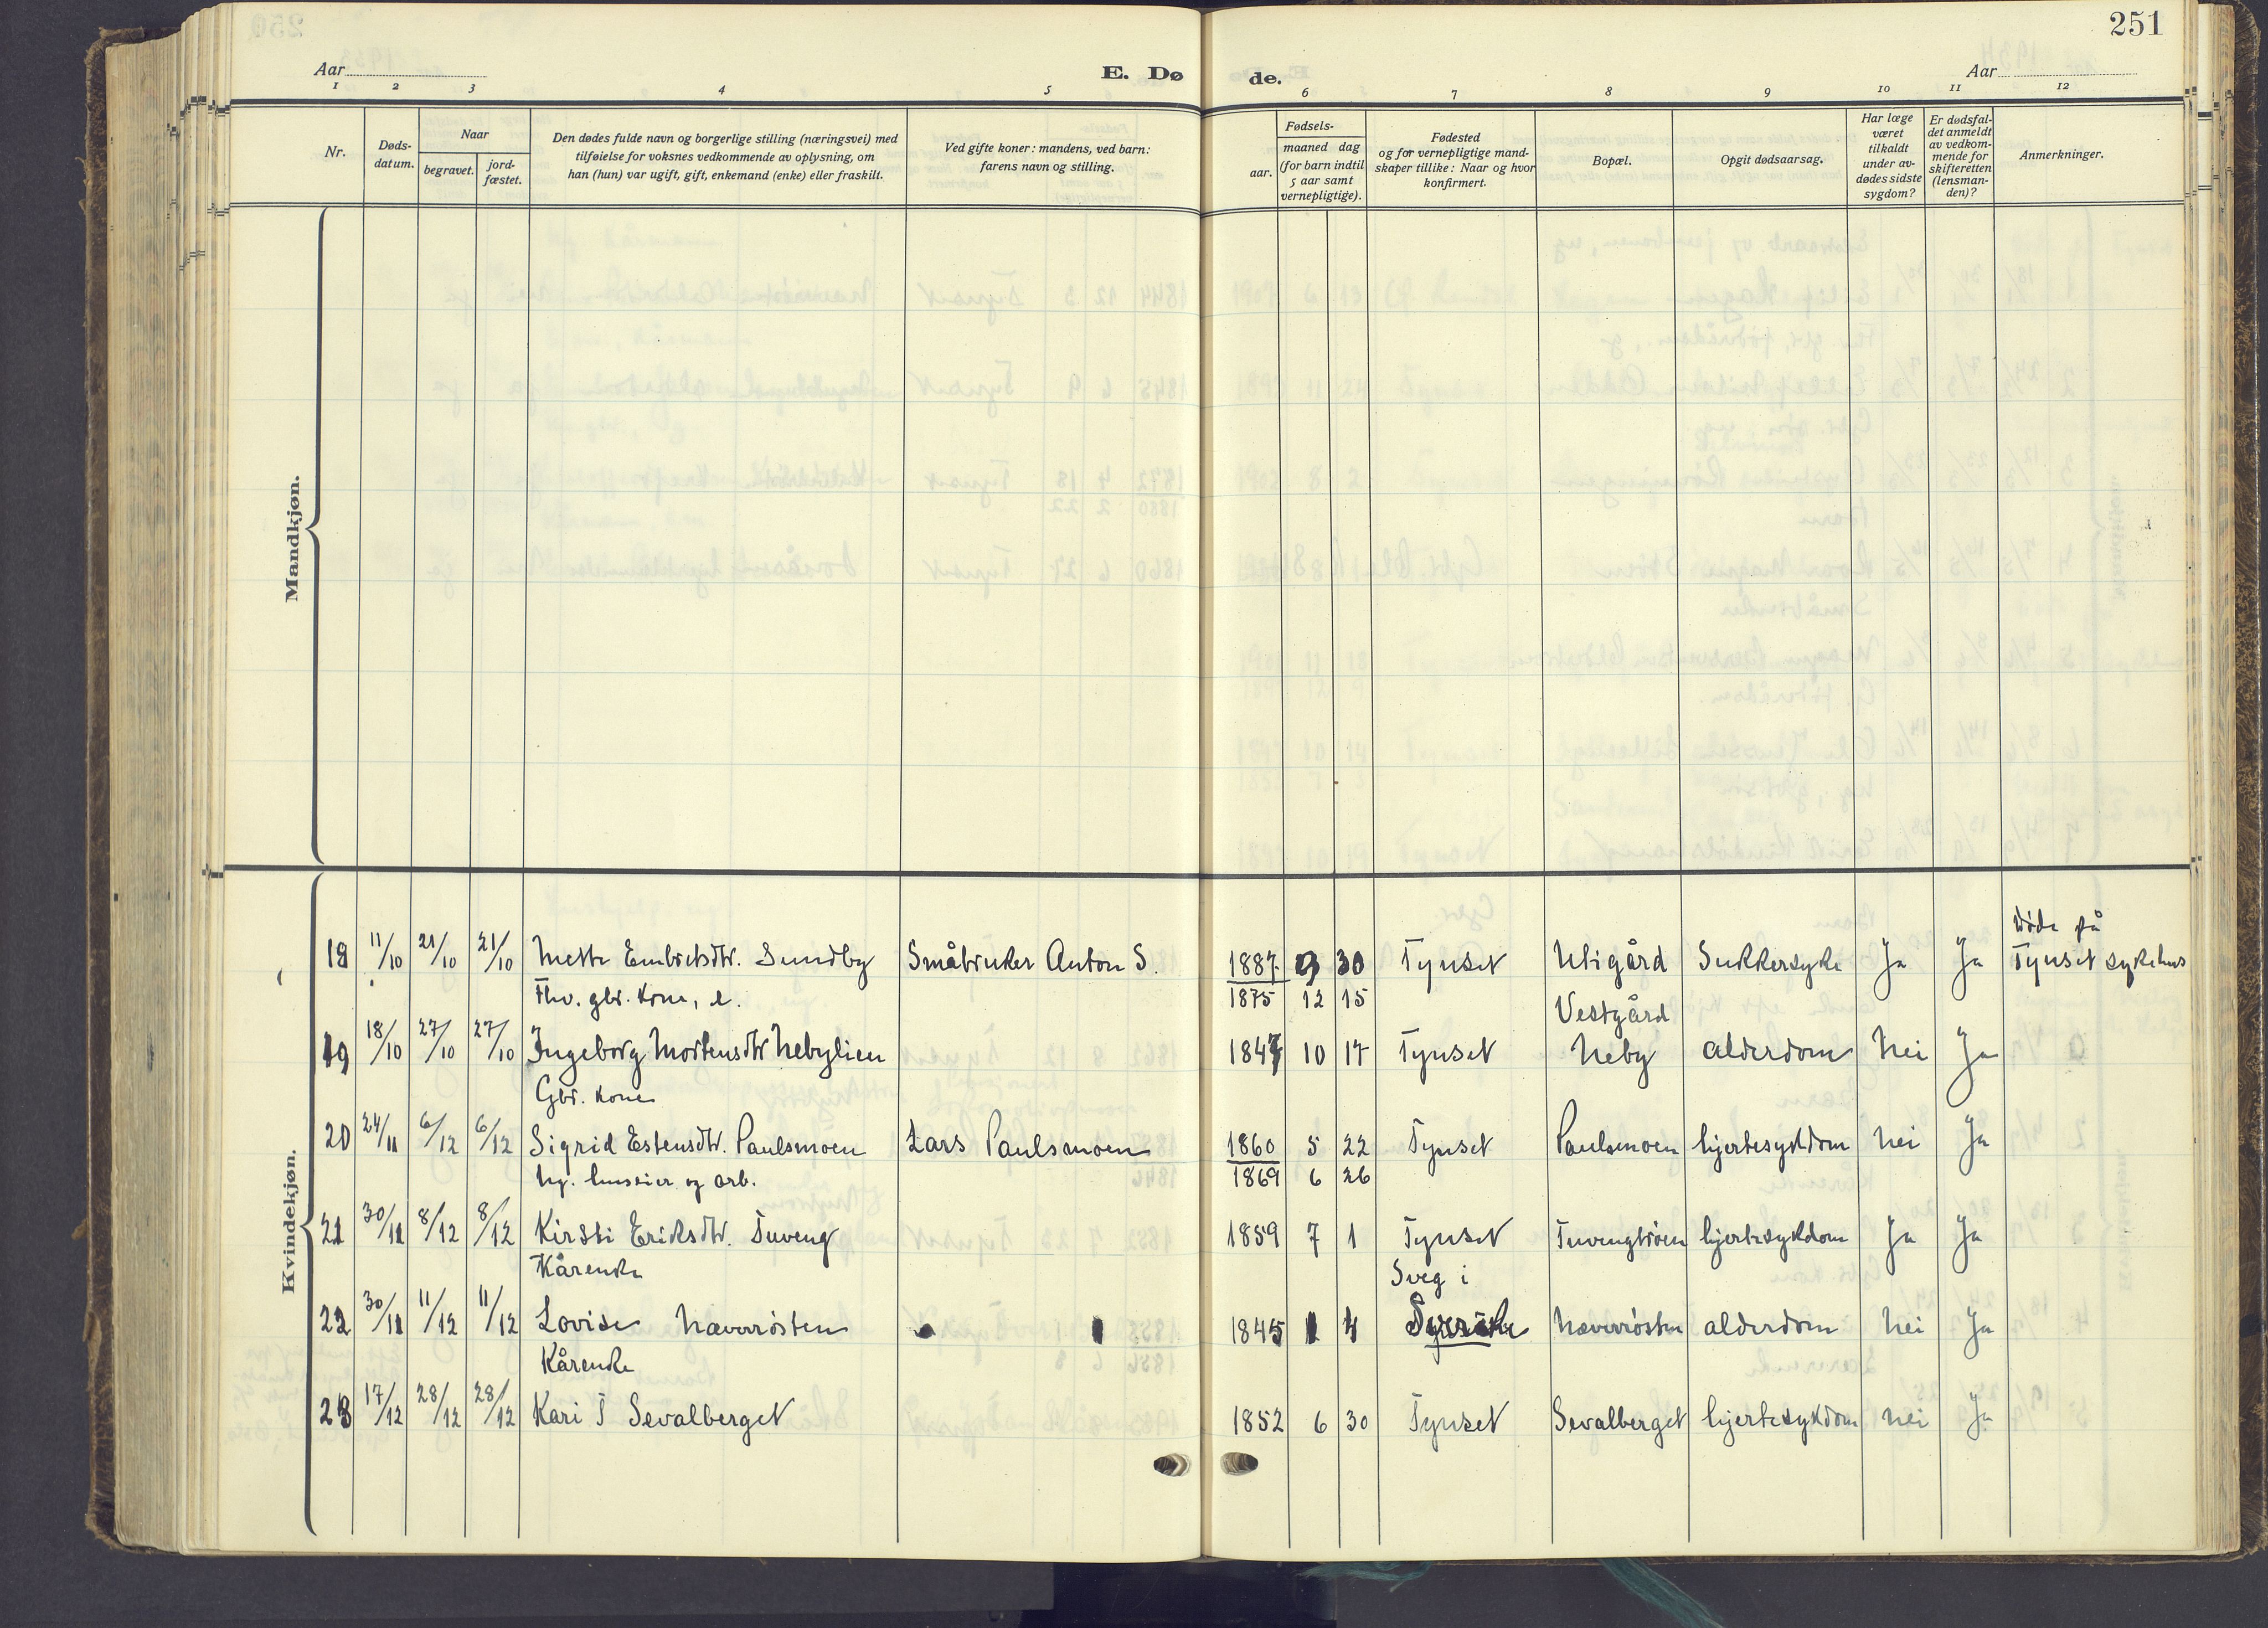 251
Aar
E. Dø
de.
Aar
1 2 3 4 5 6 7 8 9 10 11 12
Nr.
Døds-
datum.
Naar
begravet.
jord-
fæstet.
Den dødes fulde navn og borgerlige stilling (næringsvei) med
tilføielse for voksnes vedkommende av oplysning, om
han (hun) var ugift, gift, enkemand (enke) eller fraskilt.
Ved gifte koner: mandens, ved barn:
farens navn og stilling.
Fødsels-
aar.
maaned dag
(for barn indtil
5 aar samt
vernepligtige).
Fødested
og for vernepligtige mand-
skaper tillike: Naar og hvor
konfirmert.
Bopæl.
Opgit dødsaarsag.
Har læge
været
tilkaldt
under av-
dødes sidste
sygdom?
Er dødsfal-
det anmeldt
av vedkom-
mende for
skifteretten
(lensman-
den)?
Anmerkninger.
Mandkjøn.
Kvindekjøn.
Døde på
18 11/10 21/10 21/10 Mette Embretsdtr. Sundby Småbruker Anton S. 1887 9 30 Tynset Utigård Sukkersyke Ja Ja Tynset sykehus
Fhv. gbr. kone, e. 1875 12 15 Vestgård
19 18/10 27/10 27/10 Ingeborg Mortensdtr Nebylien 1847 10 17 Tynset Neby alderdom Nei Ja
Gbr. kone
20 24/11 6/12 6/12 Sigrid Estensdtr. Paulsmoen Lars Paulsmoen 1860 5 22 Tynset Paulsmoen hjertesykdom Nei Ja
hg. huseier og arb. 1869 6 26
21 30/11 8/12 8/12 Kirsti Eriksdtr. Tuveng 1859 7 1 Tynset Tuvengtrøen hjertesykdom Ja Ja
Kårenke Sveg i
22 30/11 11/12 11/12 Lovise Næverrösten 1845 1 4 Sverike Næverrösten alderdom Nei Ja
Kårenke
23 17/12 28/12 28/12 Kari T Sevalberget 1852 6 30 Tynset Sevalberget hjertesykdom Nei Ja